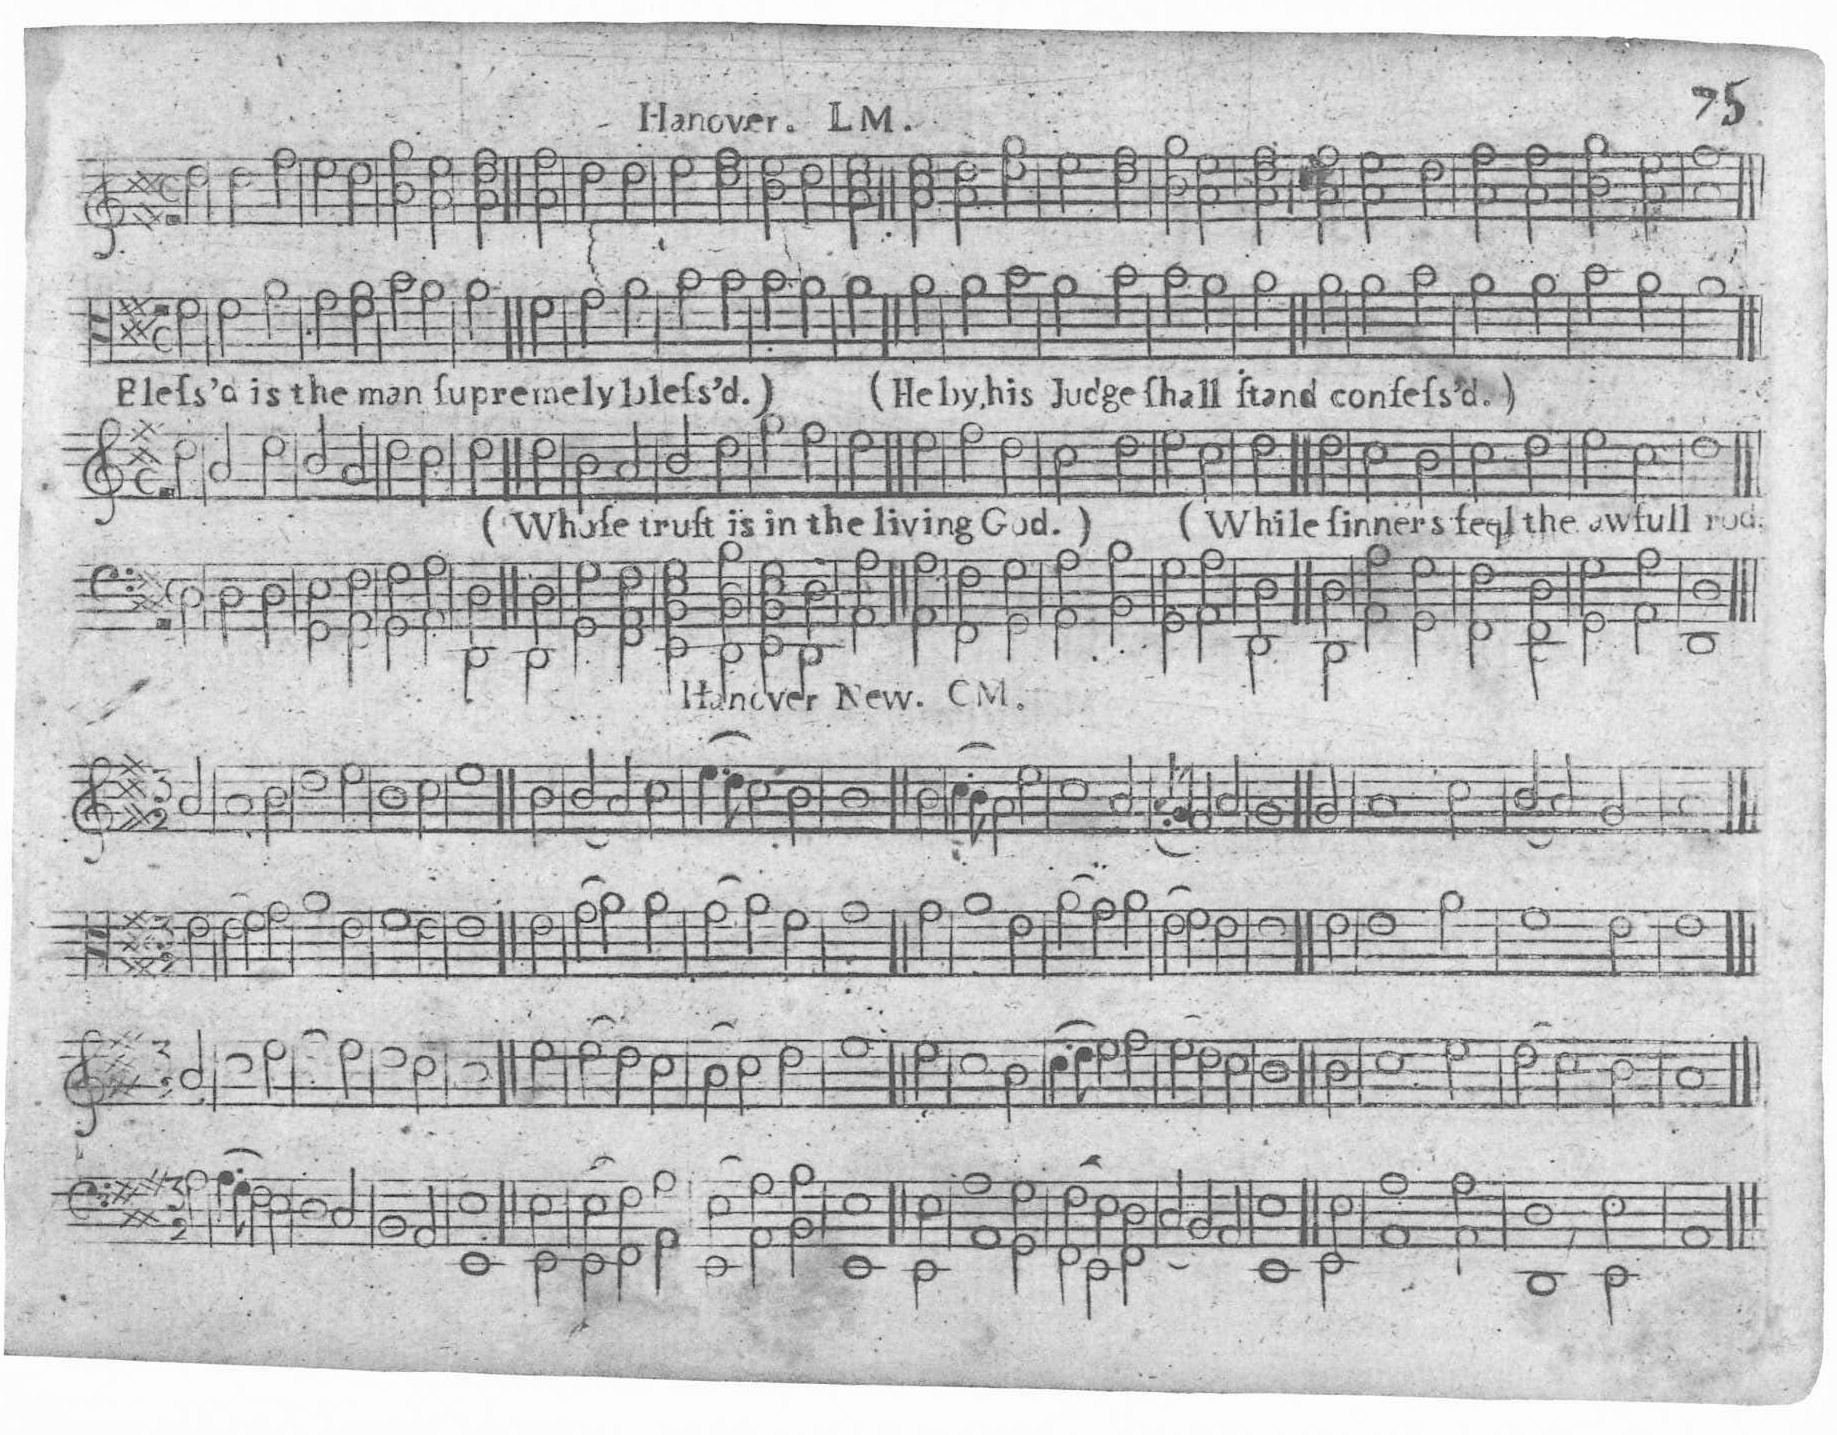 75
Hanover. LM.
Bleſs'd is the man ſupremely bleſs'd.) (He by, his Judge ſhall ſtand confeſs'd.)
(Whoſe truſt is in the living God.) (While ſinners feel the awfull rod.
Hanover New. CM.